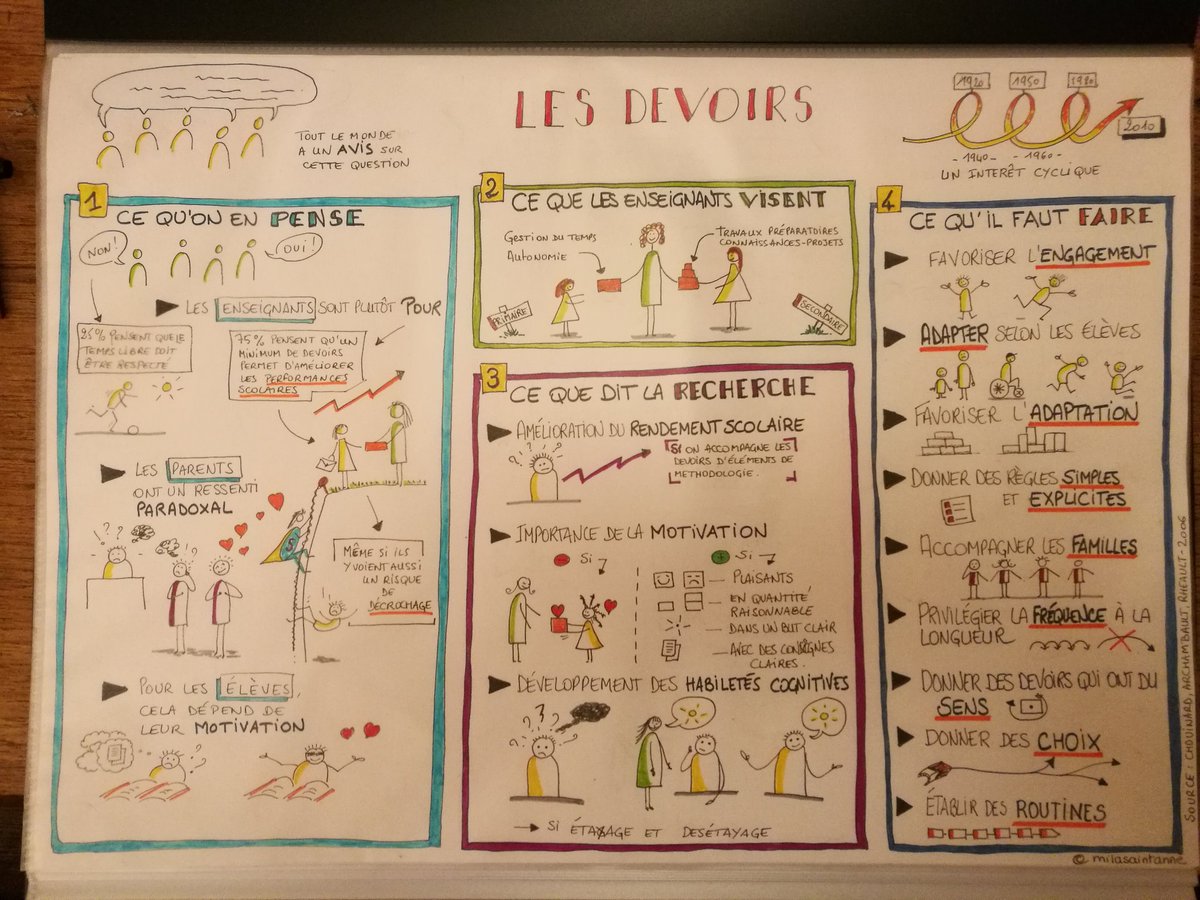 LES DEVOIRS
TOUT LE MONDE
A UN AVIS SUR
CETTE QUESTION
1920
1950
1980
2010
- 1940 -
- 1960 -
UN INTERÊT CYCLIQUE
1
CE QU'ON EN PENSE
NON!
OUI!
LES ENSEIGNANTS SONT PLUTÔT POUR
25% PENSENT QUE LE
TEMPS LIBRE DOIT
ÊTRE RESPECTÉ
75% PENSENT QU'UN
MINIMUM DE DEVOIRS
PERMET D'AMÉLIORER
LES PERFORMANCES
SCOLAIRES
LES PARENTS
ONT UN RESSENTI
PARADOXAL
? ?
! ?
$
MÊME SI ILS
Y VOIENT AUSSI
UN RISQUE
DE
DÉCROCHAGE
POUR LES ÉLÈVES,
CELA DÉPEND DE
LEUR MOTIVATION
2
CE QUE LES ENSEIGNANTS VISENT
GESTION DU TEMPS
AUTONOMIE
TRAVAUX PRÉPARATOIRES
CONNAISSANCES-PROJETS
PRIMAIRE
SECONDAIRE
3
CE QUE DIT LA RECHERCHE
AMÉLIORATION DU RENDEMENT SCOLAIRE
SI ON ACCOMPAGNE LES
DEVOIRS D'ÉLÉMENTS DE
METHODOLOGIE.
? ? ?
IMPORTANCE DE LA MOTIVATION
- SI
+ SI
— PLAISANTS
— EN QUANTITÉ
RAISONNABLE
— DANS UN BUT CLAIR
— AVEC DES CONSIGNES
CLAIRES.
DÉVELOPPEMENT DES HABILETÉS COGNITIVES
? ? ?
→ SI ÉTAYAGE ET DESÉTAYAGE
4
CE QU'IL FAUT FAIRE
FAVORISER L'ENGAGEMENT
ADAPTER SELON LES ÉLÈVES
FAVORISER L'ADAPTATION
DONNER DES RÈGLES SIMPLES
ET EXPLICITES
ACCOMPAGNER LES FAMILLES
PRIVILÉGIER LA FRÉQUENCE À LA
LONGUEUR
DONNER DES DEVOIRS QUI ONT DU
SENS
DONNER DES CHOIX
ÉTABLIR DES ROUTINES
SOURCE : CHOUINARD, ARCHAMBAULT, RHEAULT - 2006
© milasaintanne